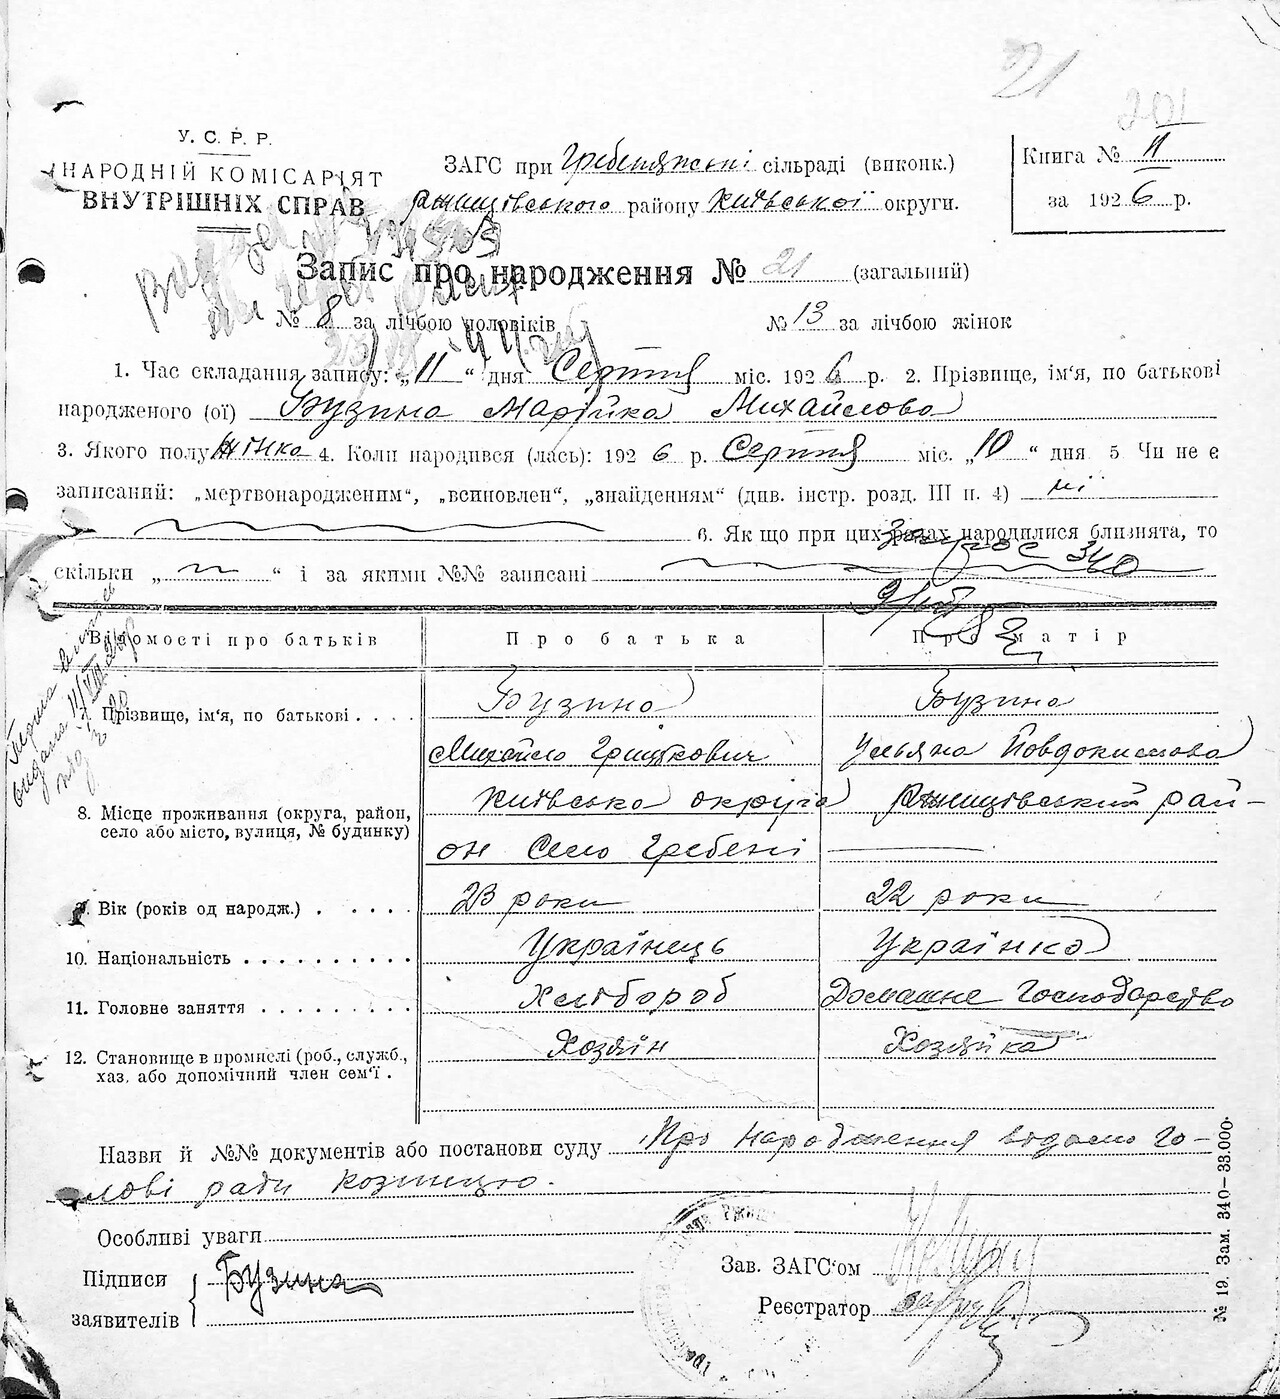 21
201
У. С. Р. Р.
НАРОДНІЙ КОМІСАРІЯТ
ВНУТРІШНІХ СПРАВ
ЗАГС при Гребенянські сільраді (виконк.)
Ржищівського району Київської округи.
Книга № II
за 1926 р.
Запис про народження № 21 (загальний)
№ 8 за лічбою чоловіків № 13 за лічбою жінок
1. Час складання запису: „11“ дня Серпня міс. 1926 р. 2. Прізвище, ім'я, по батькові
народженого (ої) Бузина Марійка Михайлова
3. Якого полу жінка 4. Коли народився (лась): 1926 р. Серпня міс. „10“ дня 5 Чи не є
записаний: „мертвонародженим“, „всиновлен“, „знайденням“ (див. інстр. розд. III п. 4) ні
6. Як що при цих родах народилися близнята, то
скільки „ “ і за якими №№ записані
340
82
Відомості про батьків
Про батька
Про матір
Прізвище, ім'я, по батькові
Бузина
Бузина
Михайло Грицькович
Ульяна Йовдокимова
8. Місце проживання (округа, район,
село або місто, вулиця, № будинку)
Київська округа Ржищівський рай-
он Село Гребені
9. Вік (років од народж.)
23 роки
22 роки
10. Національність
Українець
Українка
11. Головне заняття
Хлібороб
Домашнє Господарство
12. Становище в промислі (роб., служб.,
хаз. або допомічний член сем'ї .
Хозяїн
Хозяйка
Назви й №№ документів або постанови суду Про народження відомо го-
лові ради
Особливі уваги
Підписи
заявителів
Бузина
Зав. ЗАГС'ом
Реєстратор
№ 19. Зам. 340—33.000.